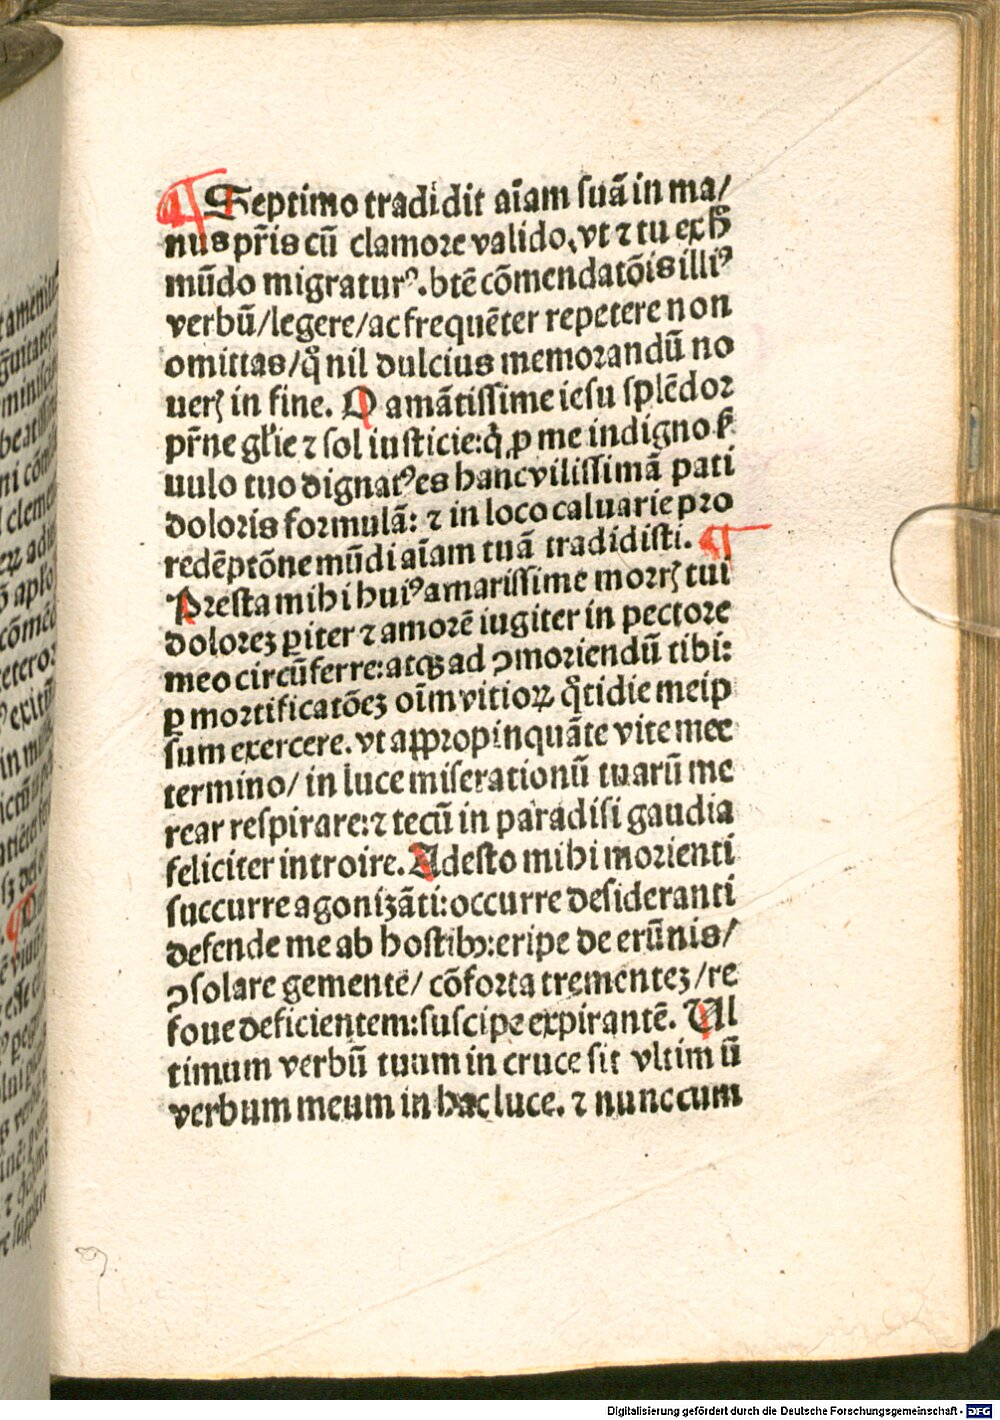 ¶ Septimo tradidit aīam ſuā in ma/
nus pr̄is cū clamore valido, vt ⁊ tu ex h̄
mūdo migraturꝰ. btē cōmendatōis illiꝰ
verbū/legere/ac frequēter repetere non
omittas/q̄ nil dulcius memorandū no
uerꝭ in fine. O amātiſſime ieſu ſplēdor
pr̄ne gl̄ie ⁊ ſol iuſticie: q̄ ꝓ me indigno ẜ
uulo tuo dignatꝰ es hanc viliſſimā pati
doloris formulā: ⁊ in loco caluarie pro
redēptōne mūdi aīam tuā tradidiſti. ¶
Preſta mihi huiꝰ amariſſime mortꝭ tui
doloreꝫ ꝑiter ⁊ amorē iugiter in pectore
meo circūferre: atqꝫ ad ꝯmoriendū tibi:
ꝑ mortificatōeꝫ oīm vitioꝝ q̄tidie meip
ſum exercere. vt appropinquāte vite mee
termino/ in luce miſerationū tuarū me
rear reſpirare: ⁊ tecū in paradiſi gaudia
feliciter introire. Adeſto mihi morienti
ſuccurre agonizāti: occurre deſideranti
defende me ab hoſtibꝫ: eripe de erūnis/
ꝯſolare gementē/ cōforta trementeꝫ/re
foue deficientem: ſuſcipe expirantē. Ul
timum verbū tuum in cruce ſit vltimū
verbum meum in hac luce. ⁊ nunc cum
Digitalisierung gefördert durch die Deutsche Forschungsgemeinschaft - DFG